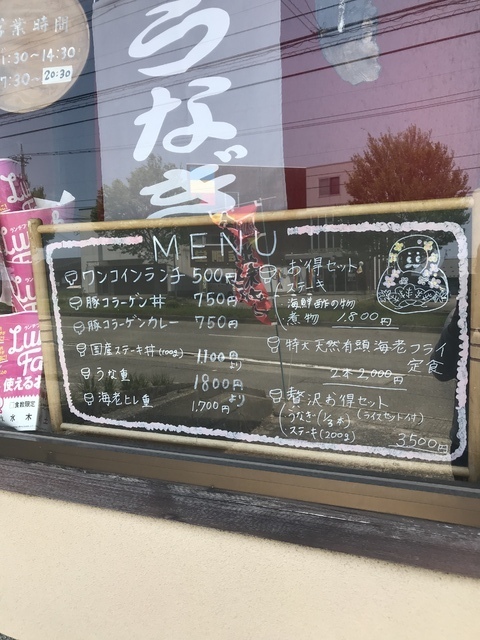 営業時間
1:30〜14:30
7:30〜20:30
うなぎ
MENU
ワンコインランチ 500円
豚コラーゲン丼 750円
豚コラーゲンカレー 750円
国産ステーキ丼(100g) 1100円より
うな重 1800円より
海老とじ重 1,700円
お得セット
ステーキ
海鮮酢の物
煮物 1,800円
特大天然有頭海老フライ
定食
2本2,000円
贅沢お得セット
うなぎ(1/3本) (ライスセット付)
ステーキ(200g)
3500円
使える
食数限定
水 木